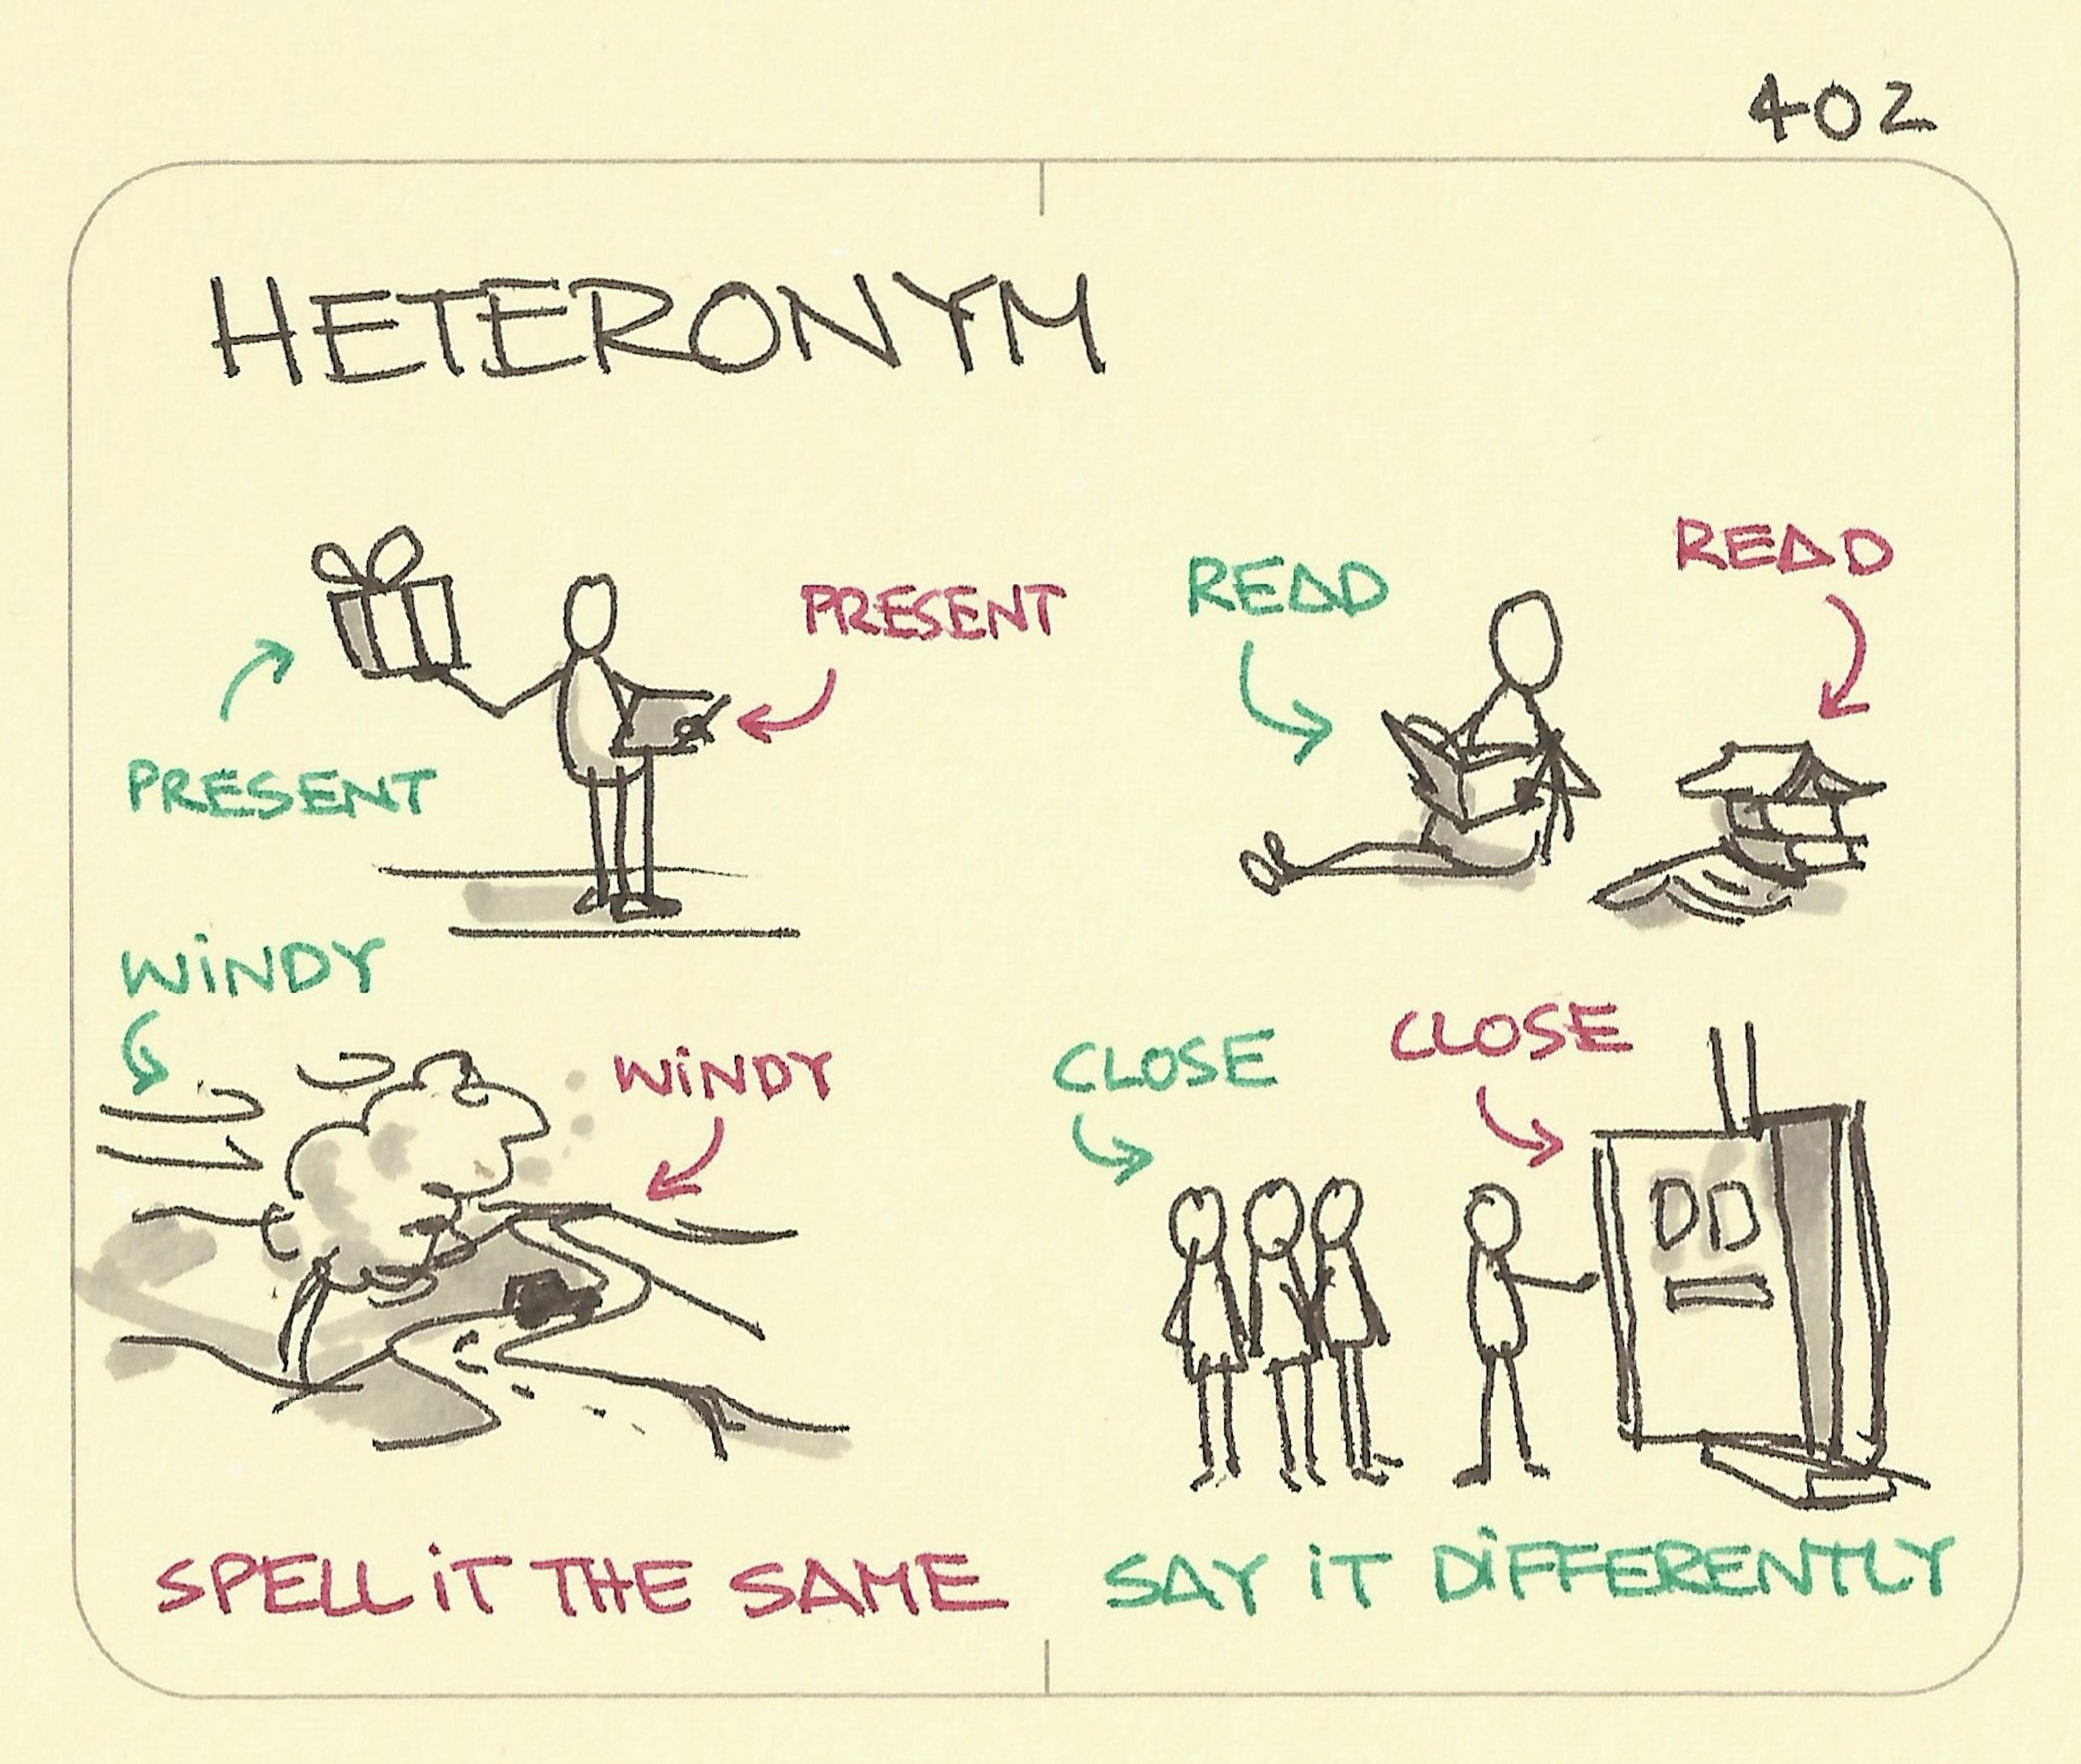 402
HETERONYM
PRESENT
PRESENT
READ
READ
WiNDY
WiNDY
CLOSE
CLOSE
SPELL iT THE SAME
SAY iT DiFFERENTLY